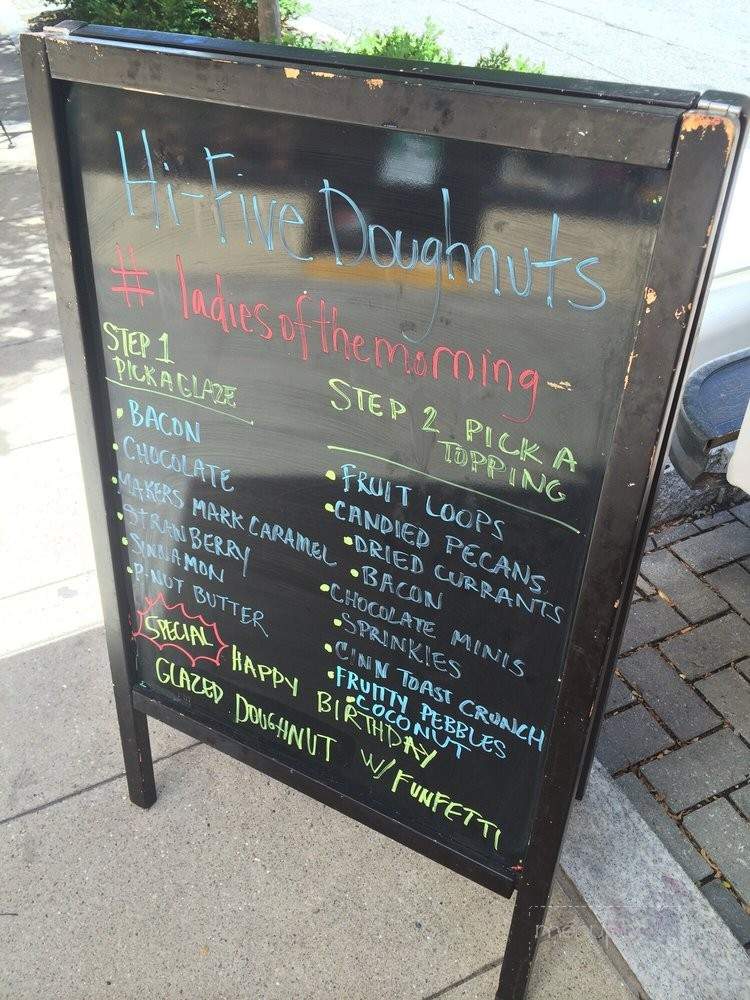 Hi-Five Doughnuts
# ladiesofthemorning-
STEP 1
PICK A GLAZE
• BACON
• CHOCOLATE
• MAKERS MARK CARAMEL
• STRANBERRY
• SINNAMON
• P-NUT BUTTER
STEP 2 PICK A
TOPPING
• FRUIT LOOPS
• CANDIED PECANS
• DRIED CURRANTS
• BACON
• CHOCOLATE MINIS
• SPRINKIES
• CINN TOAST CRUNCH
• FRUITY PEBBLES
• COCONUT
SPECIAL HAPPY BIRTHDAY
GLAZED DOUGHNUT W/ FUNFETTI